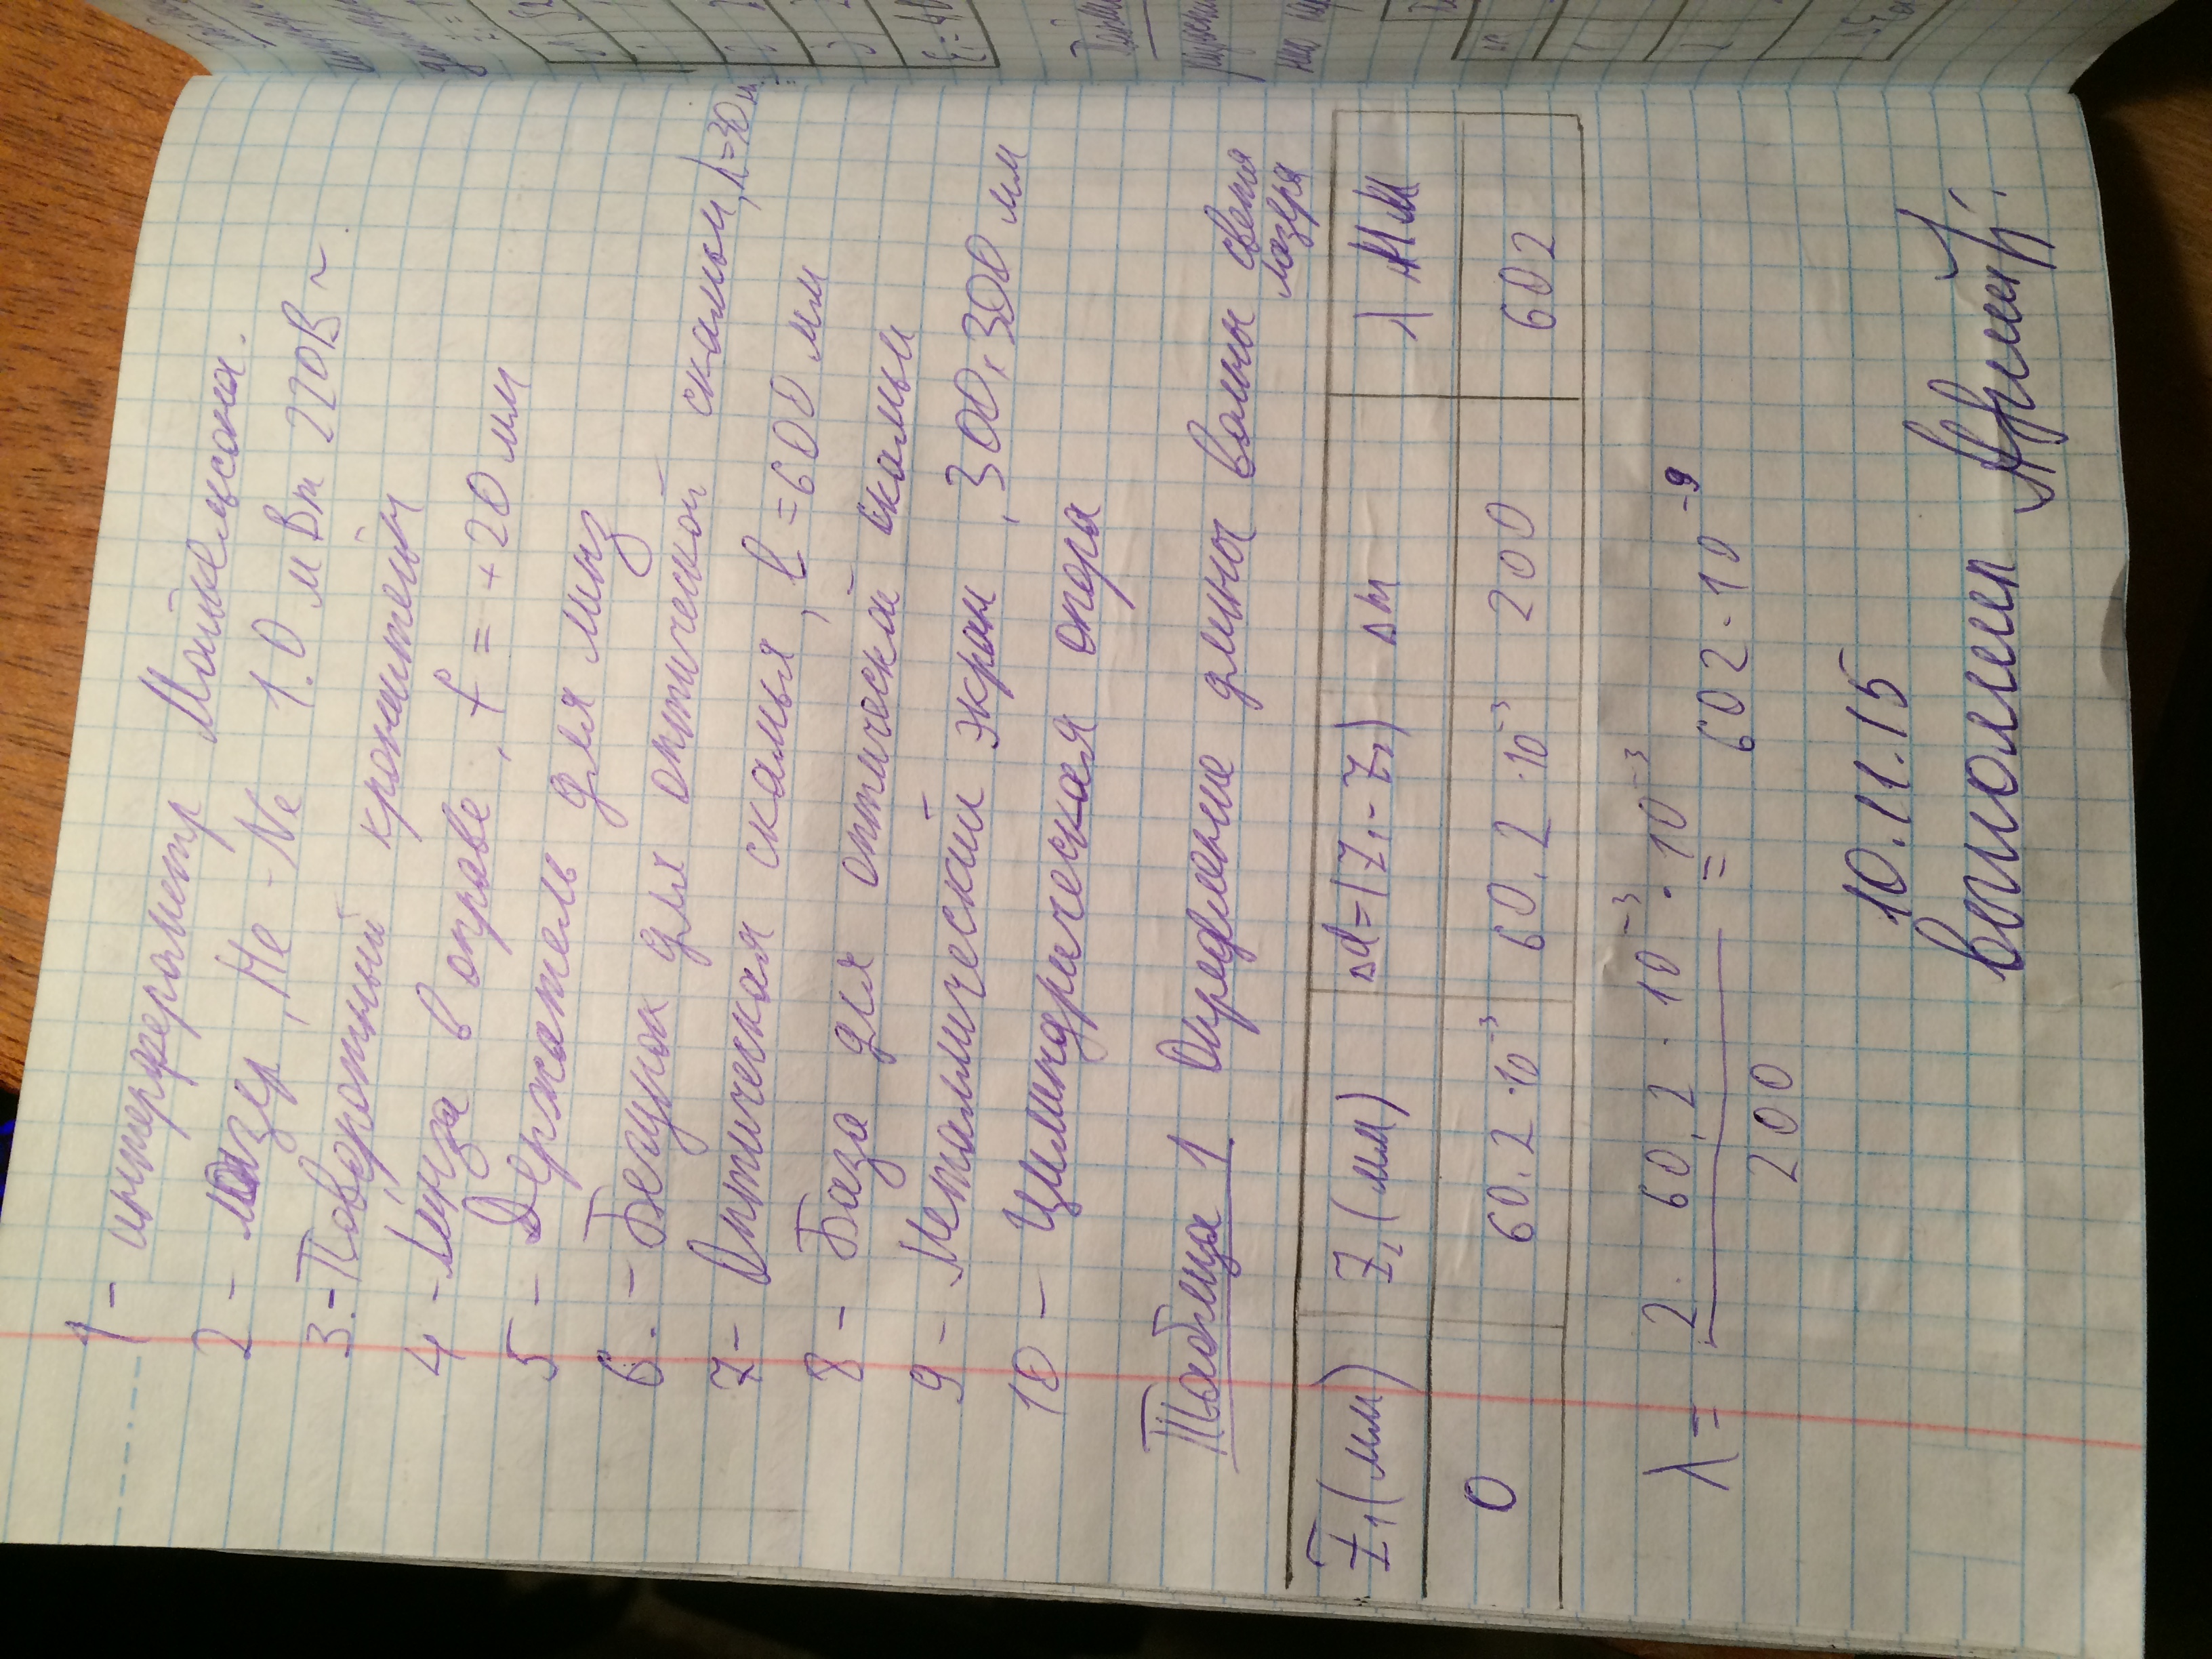 1 - интерферометр Майкельсона.
2 - лазер, He - Ne 1.0 мВт 220В ~
3. - Поворотный кронштейн
4 - Линза в оправе, f = +20 мм
5 - Держатель для линз
6. - Бегунок для оптической скамьи, h=30 мм
7 - Оптическая скамья, l = 600 мм
8 - База для оптической скамьи
9 - Металлический экран, 300x300 мм
10 - Цилиндрическая опора
Таблица 1 Определение длины волны света
лазера
Z₁ (мм) Z₂ (мм) Δd=(Z₁-Z₂) Δm λ НМ
0 60.2·10⁻³ 60.2·10⁻³ 200 602
λ = 2· 60,2 · 10⁻³ · 10⁻³ / 200 = 602·10⁻⁹
10.11.15
выполнил